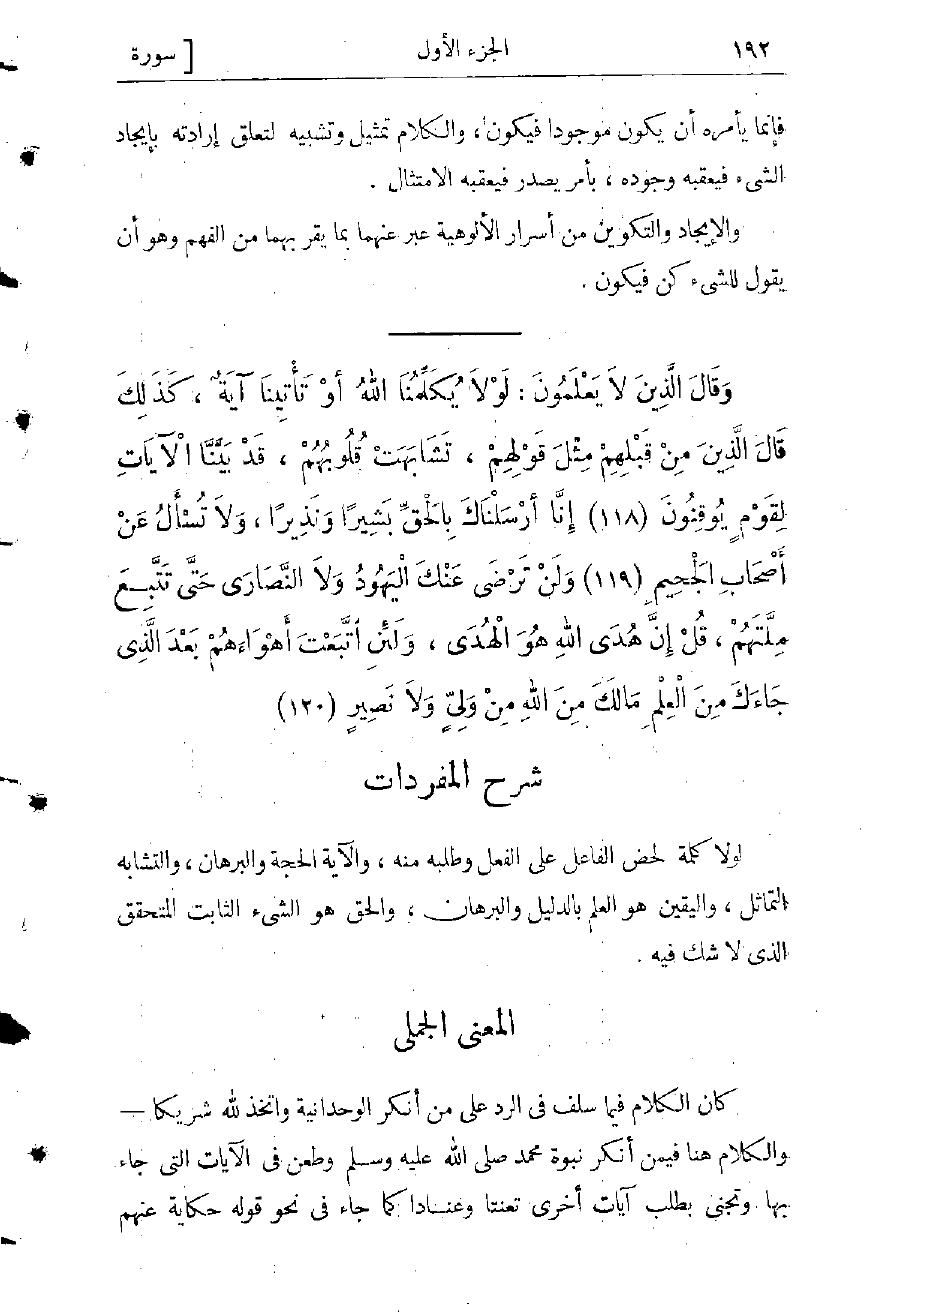 ١٩٢ الجزء الأول [ سورة
فإنما يأمره أن يكون موجودا فيكون ، والكلام تمثيل وتشبيه لتعلق إرادته بإيجاد
الشىء فيعقبه وجوده ، بأمر يصدر فيعقبه الامتثال .
والإيجاد والتكوين من أسرار الألوهية عبر عنهما بما يقر بهما من الفهم وهو أن
يقول للشىء كن فيكون .
وَقَالَ الَّذِينَ لاَ يَعْلَمُونَ : لَوْلاَ يُكَلِّمُنَا اللهُ أَوْ تَأْتِينَا آيَةٌ ، كَذَلِكَ
قَالَ الَّذِينَ مِنْ قَبْلِهِمْ مِثْلَ قَوْلِهِمْ ، تَشَابَهَتْ قُلُوبُهُمْ ، قَدْ بَيَّنَّا الْآيَاتِ
لِقَوْمٍ يُوقِنُونَ (١١٨) إِنَّا أَرْسَلْنَاكَ بِالْحَقِّ بَشِيرًا وَنَذِيرًا ، وَلاَ تُسْأَلُ عَنْ
أَصْحَابِ الْجَحِيمِ (١١٩) وَلَنْ تَرْضَى عَنْكَ الْيَهُودُ وَلاَ النَّصَارَى حَتَّى تَتَّبِعَ
مِلَّتَهُمْ ، قُلْ إِنَّ هُدَى اللهِ هُوَ الْهُدَى ، وَلَئِنِ اتَّبَعْتَ أَهْوَاءَهُمْ بَعْدَ الَّذِى
جَاءَكَ مِنَ الْعِلْمِ مَالَكَ مِنَ اللهِ مِنْ وَلِىٍّ وَلاَ نَصِيرٍ (١٢٠)
شرح المفردات
لولا كلمة لحض الفاعل على الفعل وطلبه منه ، والآية الحجة والبرهان ، والتشابه
التماثل ، واليقين هو العلم بالدليل والبرهان ، والحق هو الشىء الثابت المتحقق
الذى لا شك فيه .
المعنى الجملى
كان الكلام فيما سلف فى الرد على من أنكر الوحدانية واتخذ لله شريكا —
والكلام هنا فيمن أنكر نبوة محمد صلى الله عليه وسلم وطعن فى الآيات التى جاء
بها وتجنى بطلب آيات أخرى تعنتا وعنادا كما جاء فى نحو قوله حكاية عنهم